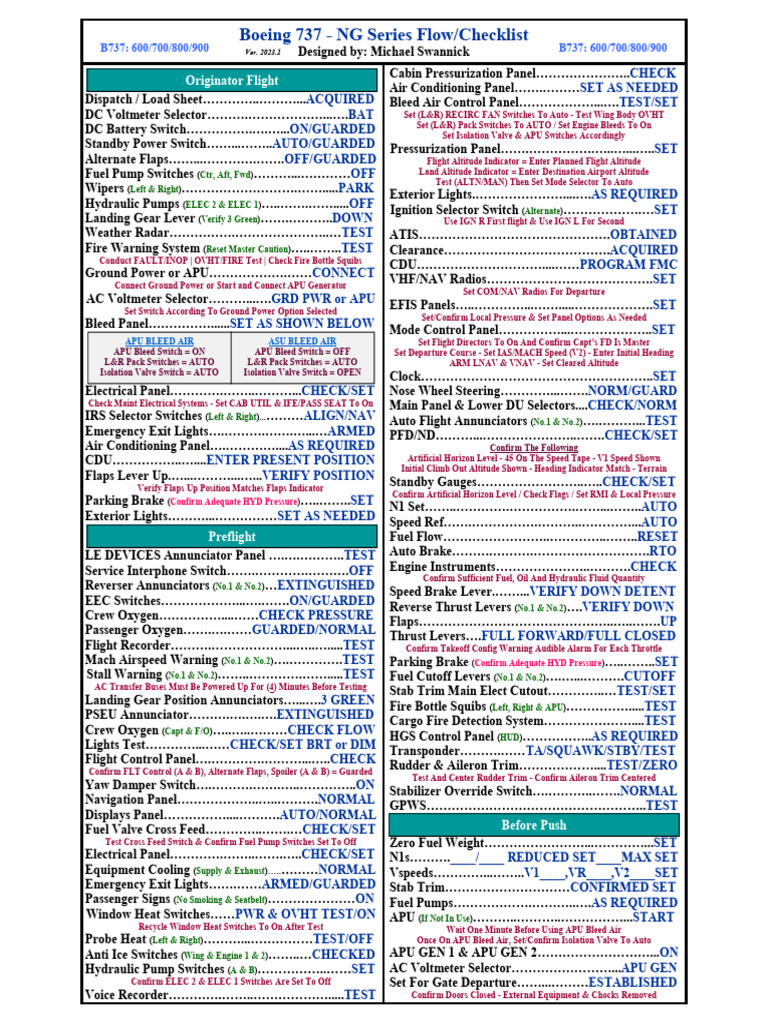 Boeing 737 - NG Series Flow/Checklist
B737: 600/700/800/900
Ver. 2023.1
Designed by: Michael Swannick
B737: 600/700/800/900
Originator Flight
Dispatch / Load Sheet…………..………...ACQUIRED
DC Voltmeter Selector……………………..….BAT
DC Battery Switch……………..………...ON/GUARDED
Standby Power Switch……………..AUTO/GUARDED
Alternate Flaps……...………………OFF/GUARDED
Fuel Pump Switches (Ctr, Aft, Fwd)…………..………OFF
Wipers (Left & Right)……………………………....PARK
Hydraulic Pumps (ELEC 2 & ELEC 1)……………...…OFF
Landing Gear Lever (Verify 3 Green)……….………DOWN
Weather Radar………………………………...TEST
Fire Warning System (Reset Master Caution)…...……..TEST
Conduct FAULT/INOP | OVHT/FIRE Test | Check Fire Bottle Squibs
Ground Power or APU……………….…CONNECT
Connect Ground Power or Start and Connect APU Generator
AC Voltmeter Selector………..….GRD PWR or APU
Set Switch According To Ground Power Option Selected
Bleed Panel……………......SET AS SHOWN BELOW
APU BLEED AIR
APU Bleed Switch = ON
L&R Pack Switches = AUTO
Isolation Valve Switch = AUTO
ASU BLEED AIR
APU Bleed Switch = OFF
L&R Pack Switches = AUTO
Isolation Valve Switch = OPEN
Electrical Panel…………………………...CHECK/SET
Check Maint Electrical Systems - Set CAB UTIL & IFE/PASS SEAT To On
IRS Selector Switches (Left & Right)...………ALIGN/NAV
Emergency Exit Lights………………………ARMED
Air Conditioning Panel……………...AS REQUIRED
CDU……………..…...ENTER PRESENT POSITION
Flaps Lever Up……..……………VERIFY POSITION
Verify Flaps Up Position Matches Flaps Indicator
Parking Brake (Confirm Adequate HYD Pressure)…..…….SET
Exterior Lights………..……………SET AS NEEDED
Preflight
LE DEVICES Annunciator Panel ….……………TEST
Service Interphone Switch………………………OFF
Reverser Annunciators (No.1 & No.2)…EXTINGUISHED
EEC Switches………………..………..ON/GUARDED
Crew Oxygen…………..…...……CHECK PRESSURE
Passenger Oxygen……..…..……GUARDED/NORMAL
Flight Recorder……………………………....…TEST
Mach Airspeed Warning (No.1 & No.2)…..…………TEST
Stall Warning (No.1 & No.2)……...……………………TEST
AC Transfer Buses Must Be Powered Up For (4) Minutes Before Testing
Landing Gear Position Annunciators…...….3 GREEN
PSEU Annunciator…….……….…….EXTINGUISHED
Crew Oxygen (Capt & F/O)…..…………CHECK FLOW
Lights Test………..………CHECK/SET BRT or DIM
Flight Control Panel………………………...…CHECK
Confirm FLT Control (A & B), Alternate Flaps, Spoiler (A & B) = Guarded
Yaw Damper Switch………………………...……ON
Navigation Panel………………..…….………NORMAL
Displays Panel………………..………AUTO/NORMAL
Fuel Valve Cross Feed……………..……….CHECK/SET
Test Cross Feed Switch & Confirm Fuel Pump Switches Set To Off
Electrical Panel…………………………...CHECK/SET
Equipment Cooling (Supply & Exhaust)…..…………NORMAL
Emergency Exit Lights………..…ARMED/GUARDED
Passenger Signs (No Smoking & Seatbelt)……………..……ON
Window Heat Switches……PWR & OVHT TEST/ON
Recycle Window Heat Switches To On After Test
Probe Heat (Left & Right)………..………………TEST/OFF
Anti Ice Switches (Wing & Engine 1 & 2)……..….CHECKED
Hydraulic Pump Switches (A & B)………………….…SET
Confirm ELEC 2 & ELEC 1 Switches Are Set To Off
Voice Recorder……………………………….....TEST
Cabin Pressurization Panel………………….CHECK
Air Conditioning Panel……………SET AS NEEDED
Bleed Air Control Panel……………….…..TEST/SET
Set (L&R) RECIRC FAN Switches To Auto - Test Wing Body OVHT
Set (L&R) Pack Switches To AUTO / Set Engine Bleeds To On
Set Isolation Valve & APU Switches Accordingly
Pressurization Panel……………………….…..SET
Flight Altitude Indicator = Enter Planned Flight Altitude
Land Altitude Indicator = Enter Destination Airport Altitude
Test (ALTN/MAN) Then Set Mode Selector To Auto
Exterior Lights……………………..….AS REQUIRED
Ignition Selector Switch (Alternate)………………….…SET
Use IGN R First flight & Use IGN L For Second
ATIS…………………………………..OBTAINED
Clearance…………………………….…ACQUIRED
CDU………………………...…...PROGRAM FMC
VHF/NAV Radios………………………………SET
Set COM/NAV Radios For Departure
EFIS Panels………………………………..…..SET
Set/Confirm Local Pressure & Set Panel Options As Needed
Mode Control Panel………………………..…..SET
Set Flight Directors To On And Confirm Capt's FD Is Master
Set Departure Course - Set IAS/MACH Speed (V2) - Enter Initial Heading
ARM LNAV & VNAV - Set Cleared Altitude
Clock……………………………………………SET
Nose Wheel Steering……………..….NORM/GUARD
Main Panel & Lower DU Selectors….CHECK/NORM
Auto Flight Annunciators (No.1 & No.2)………..…...TEST
PFD/ND……………………………….…CHECK/SET
Confirm The Following
Artificial Horizon Level - 45 On The Speed Tape - V1 Speed Shown
Initial Climb Out Altitude Shown - Heading Indicator Match - Terrain
Standby Gauges…………………….…..CHECK/SET
Confirm Artificial Horizon Level / Check Flags / Set RMI & Local Pressure
N1 Set………………………………………..AUTO
Speed Ref……………………………………AUTO
Fuel Flow……………………………………RESET
Auto Brake……………………………….…..RTO
Engine Instruments…………………………CHECK
Confirm Sufficient Fuel, Oil And Hydraulic Fluid Quantity
Speed Brake Lever……..VERIFY DOWN DETENT
Reverse Thrust Levers (No.1 & No.2)….VERIFY DOWN
Flaps……………………………………………...UP
Thrust Levers….FULL FORWARD/FULL CLOSED
Confirm Takeoff Config Warning Audible Alarm For Each Throttle
Parking Brake (Confirm Adequate HYD Pressure)…..……..SET
Fuel Cutoff Levers (No.1 & No.2)………..………CUTOFF
Stab Trim Main Elect Cutout…………….…TEST/SET
Fire Bottle Squibs (Left, Right & APU)……………..…...TEST
Cargo Fire Detection System………………....TEST
HGS Control Panel (HUD)………………..AS REQUIRED
Transponder………….……TA/SQUAWK/STBY/TEST
Rudder & Aileron Trim………………...TEST/ZERO
Test And Center Rudder Trim - Confirm Aileron Trim Centered
Stabilizer Override Switch………….…….NORMAL
GPWS…………………………………………...TEST
Before Push
Zero Fuel Weight…………………………..…..SET
N1s……….____/____ REDUCED SET____MAX SET
Vspeeds…………..……..V1____,VR____,V2____SET
Stab Trim………………………CONFIRMED SET
Fuel Pumps…………………………AS REQUIRED
APU (If Not In Use)…………………..…………..START
Wait One Minute Before Using APU Bleed Air
Once On APU Bleed Air, Set/Confirm Isolation Valve To Auto
APU GEN 1 & APU GEN 2………………………..ON
AC Voltmeter Selector……………………..APU GEN
Set For Gate Departure……...………ESTABLISHED
Confirm Doors Closed - External Equipment & Chocks Removed